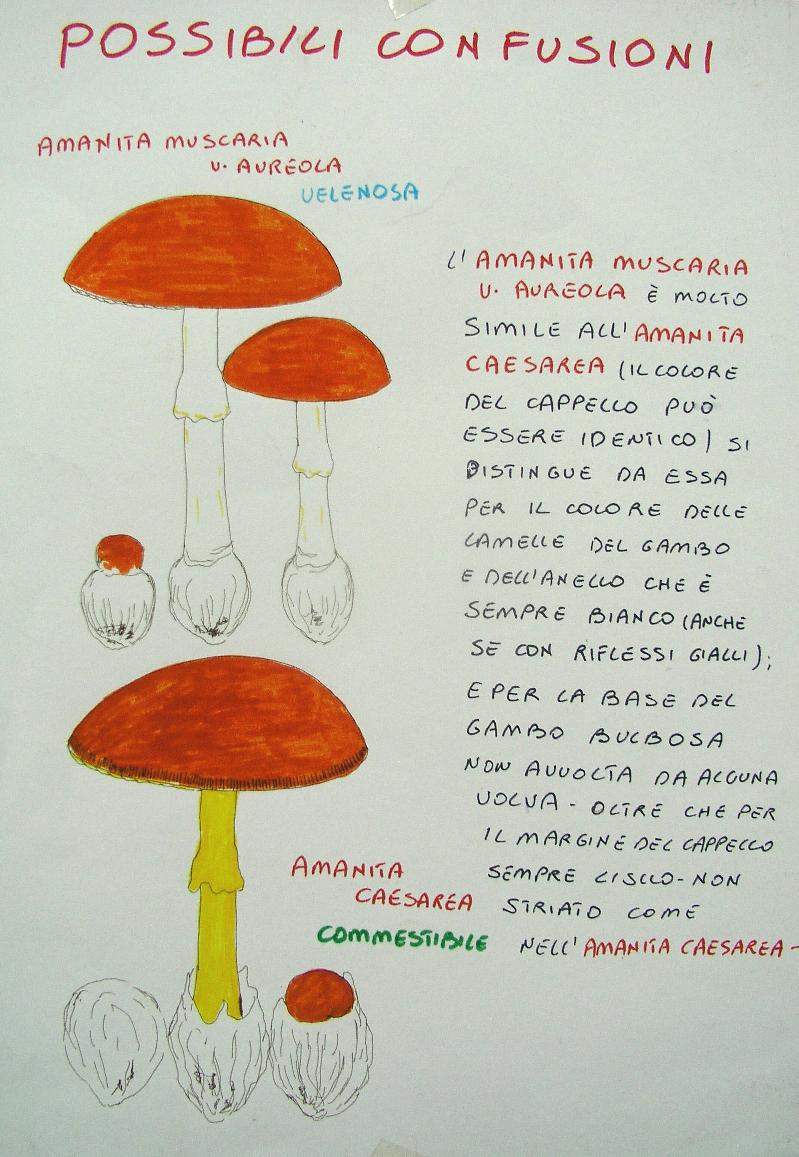 POSSIBILI CONFUSIONI
AMANITA MUSCARIA
v. AUREOLA
VELENOSA
L'AMANITA MUSCARIA
v. AUREOLA È MOLTO
SIMILE ALL'AMANITA
CAESAREA (IL COLORE
DEL CAPPELLO PUÒ
ESSERE IDENTICO) SI
DISTINGUE DA ESSA
PER IL COLORE DELLE
LAMELLE DEL GAMBO
E DELL'ANELLO CHE È
SEMPRE BIANCO (ANCHE
SE CON RIFLESSI GIALLI);
E PER LA BASE DEL
GAMBO BULBOSA
NON AVVOLTA DA ALCUNA
VOLVA - OLTRE CHE PER
IL MARGINE DEL CAPPELLO
SEMPRE LISCIO - NON
STRIATO COME
NELL'AMANITA CAESAREA -
AMANITA
CAESAREA
COMMESTIBILE